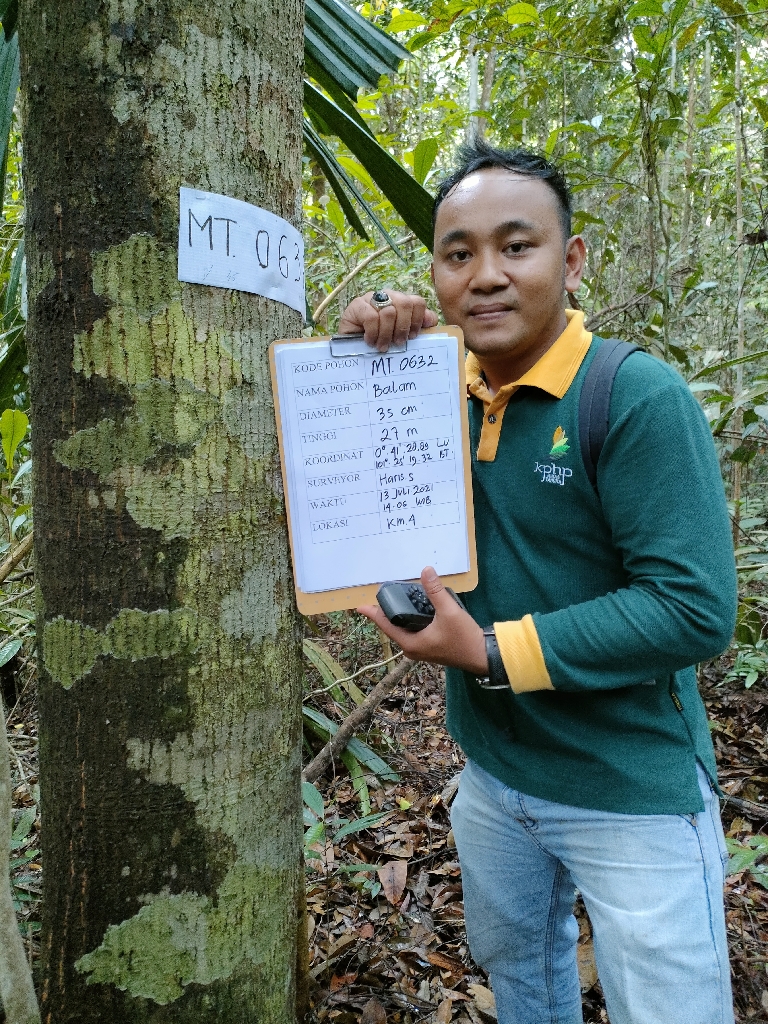 MT. 063
KODE POHON MT. 0632
NAMA POHON Balam
DIAMETER 35 cm
TINGGI 27 m
KOORDINAT 0° 41' 20.80 LU
101° 25' 19.32 BT
SURVEYOR Haris S
WAKTU 13 Juli 2021
14.06 WIB
LOKASI Km.4
kphp